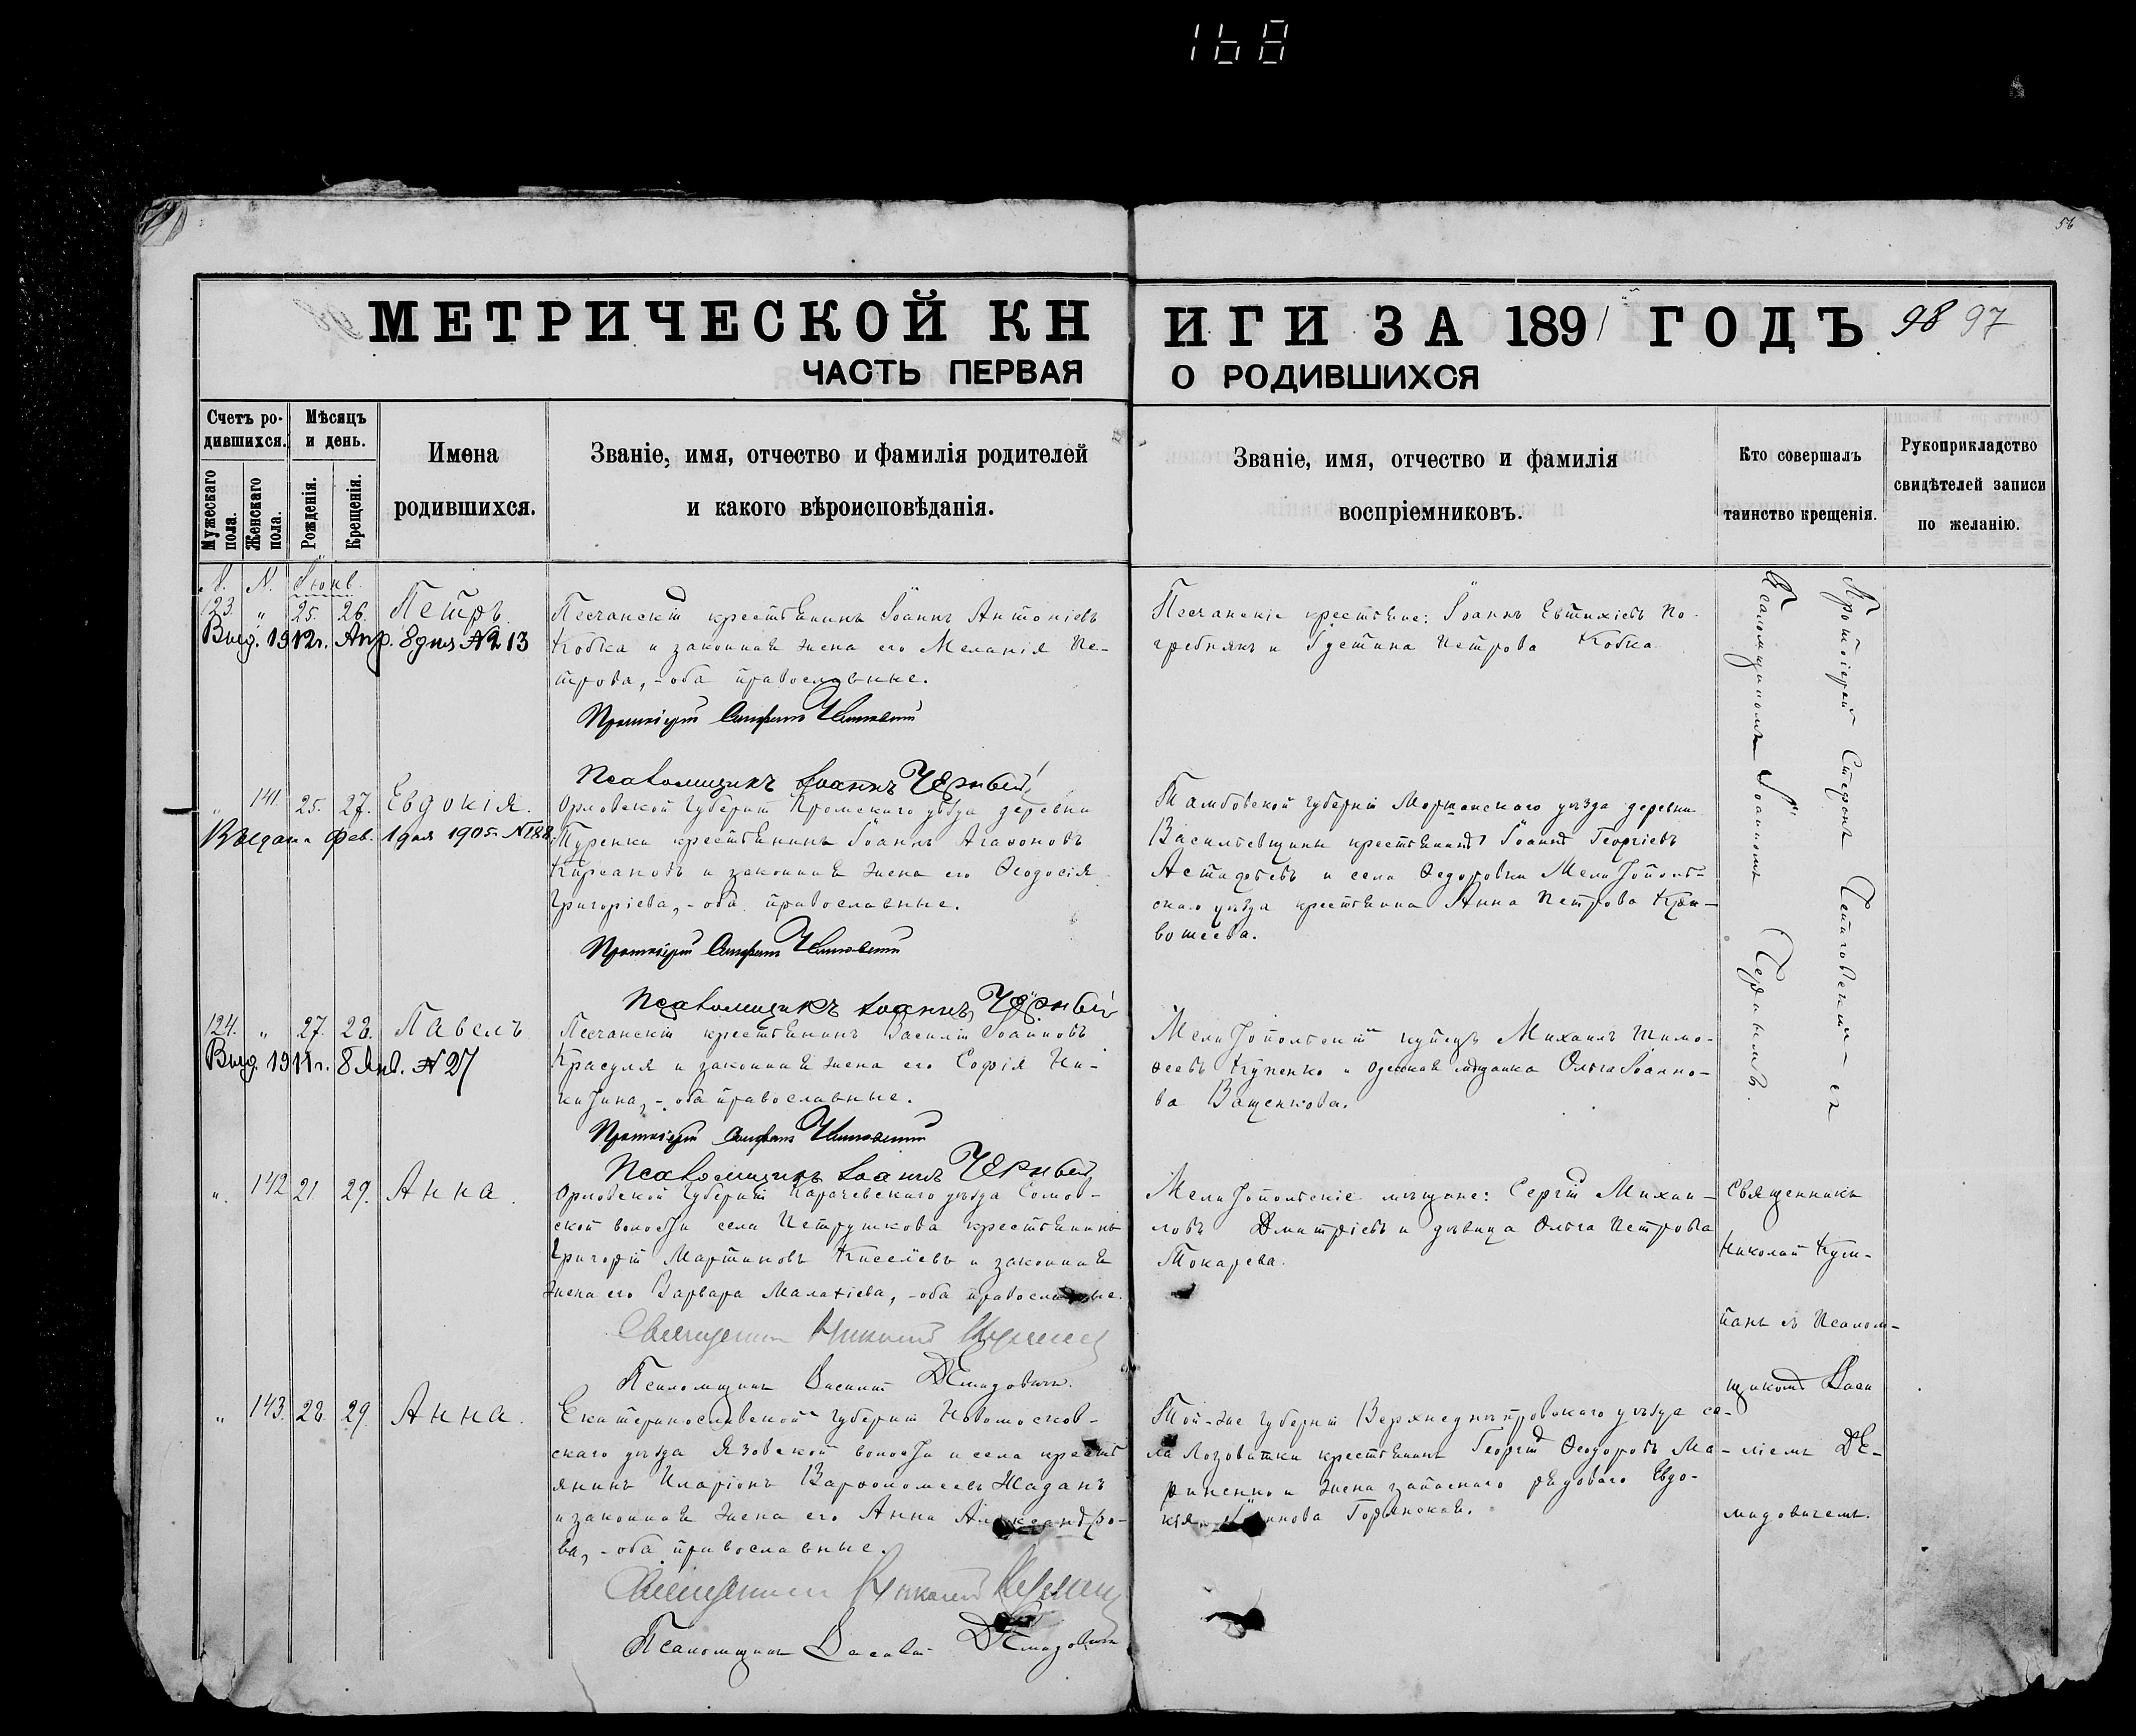 168
56
МЕТРИЧЕСКОЙ КНИГИ ЗА 1891й ГОДЪ 98 97
ЧАСТЬ ПЕРВАЯ О РОДИВШИХСЯ
Счетъ родившихся.
Мужескаго пола.
Женскаго пола.
Мѣсяцъ и день.
Рожденія.
Крещенія.
Имена
родившихся.
Званіе, имя, отчество и фамилія родителей
и какого вѣроисповѣданія.
Званіе, имя, отчество и фамилія
воспріемниковъ.
Кто совершалъ
таинство крещенія.
Рукоприкладство
свидѣтелей записи
по желанію.
N. N.
123 " 25. 26. Петръ.
Выд. 1912г. Апр. 8 дня №213
Песчанскій крестьянинъ Іоаннъ Антоніевъ
Кобка и законная жена его Меланія Пе-
трова, - оба православные.
Протоіерей Стефанъ
Псаломщикъ Іоаннъ Черный
Песчанскіе крестьяне: Іоаннъ Евтихіевъ По-
гребнякъ и Іустина Петрова Кобка
Протоіерей Стефанъ съ
Псаломщикомъ Іоанномъ Чернымъ.
" 141. 25. 27. Евдокія.
Выдана фев. 1 дня 1905г. №188.
Орловской губерніи Кромскаго уѣзда деревни
Туренки крестьянинъ Іоаннъ Агафоновъ
Кирсановъ и законная жена его Ѳеодосія
Григоріева, - оба православные.
Протоіерей Стефанъ
Псаломщикъ Іоаннъ Черный
Тамбовской губерніи Моршанскаго уѣзда деревни
Васильевщины крестьянинъ Іоаннъ Георгіевъ
Астафьевъ и села Ѳедоровки Мелитополь-
скаго уѣзда крестьянка Анна Петрова Кри-
вошеева.
124. " 27. 28. Павелъ
Выд. 1911г. 8 Янв. №27
Песчанскій крестьянинъ Василій Іоанновъ
Красуля и законная жена его Софія Ни-
китина, - оба православные.
Протоіерей Стефанъ
Псаломщикъ Іоаннъ Черный
Мелитопольскій купецъ Михаилъ Тимо-
ѳеевъ Купенко и Одесская мѣщанка Ольга Іоанно-
ва Ващенкова.
". 142 21 29. Анна.
Орловской губерніи Карачевскаго уѣзда Сомов-
ской волости села Петрушкова крестьянинъ
Григорій Мартиновъ Киселёвъ и законная
жена его Варвара Малахіева, - оба православные.
Священникъ Николай
Псаломщикъ Василій Демидовичъ.
Мелитопольскіе мѣщане: Сергій Михаи-
ловъ Дмитріевъ и дѣвица Ольга Петрова
Токарева.
Священникъ
Николай
съ Псалом-
щикомъ Васи
ліемъ Де-
мидовичемъ.
" 143. 28. 29. Анна.
Екатеринославской губерніи Новомосков-
скаго уѣзда Язовской волости и села крестъ
янинъ Иларіонъ Варѳоломеевъ Жаданъ
и законная жена его Анна Александро-
ва, - оба православные.
Священникъ Николай
Псаломщикъ Василій Демидовичъ
Той-же губерніи Верхнеднѣпровскаго уѣзда се-
ла Лозоватки крестьянинъ Георгій Ѳеодоровъ Ма-
риненко и жена запаснаго рядоваго Евдо-
кія Горянская.